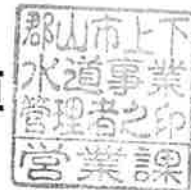 郡山市上下
水道事業
管理者之印
営業課